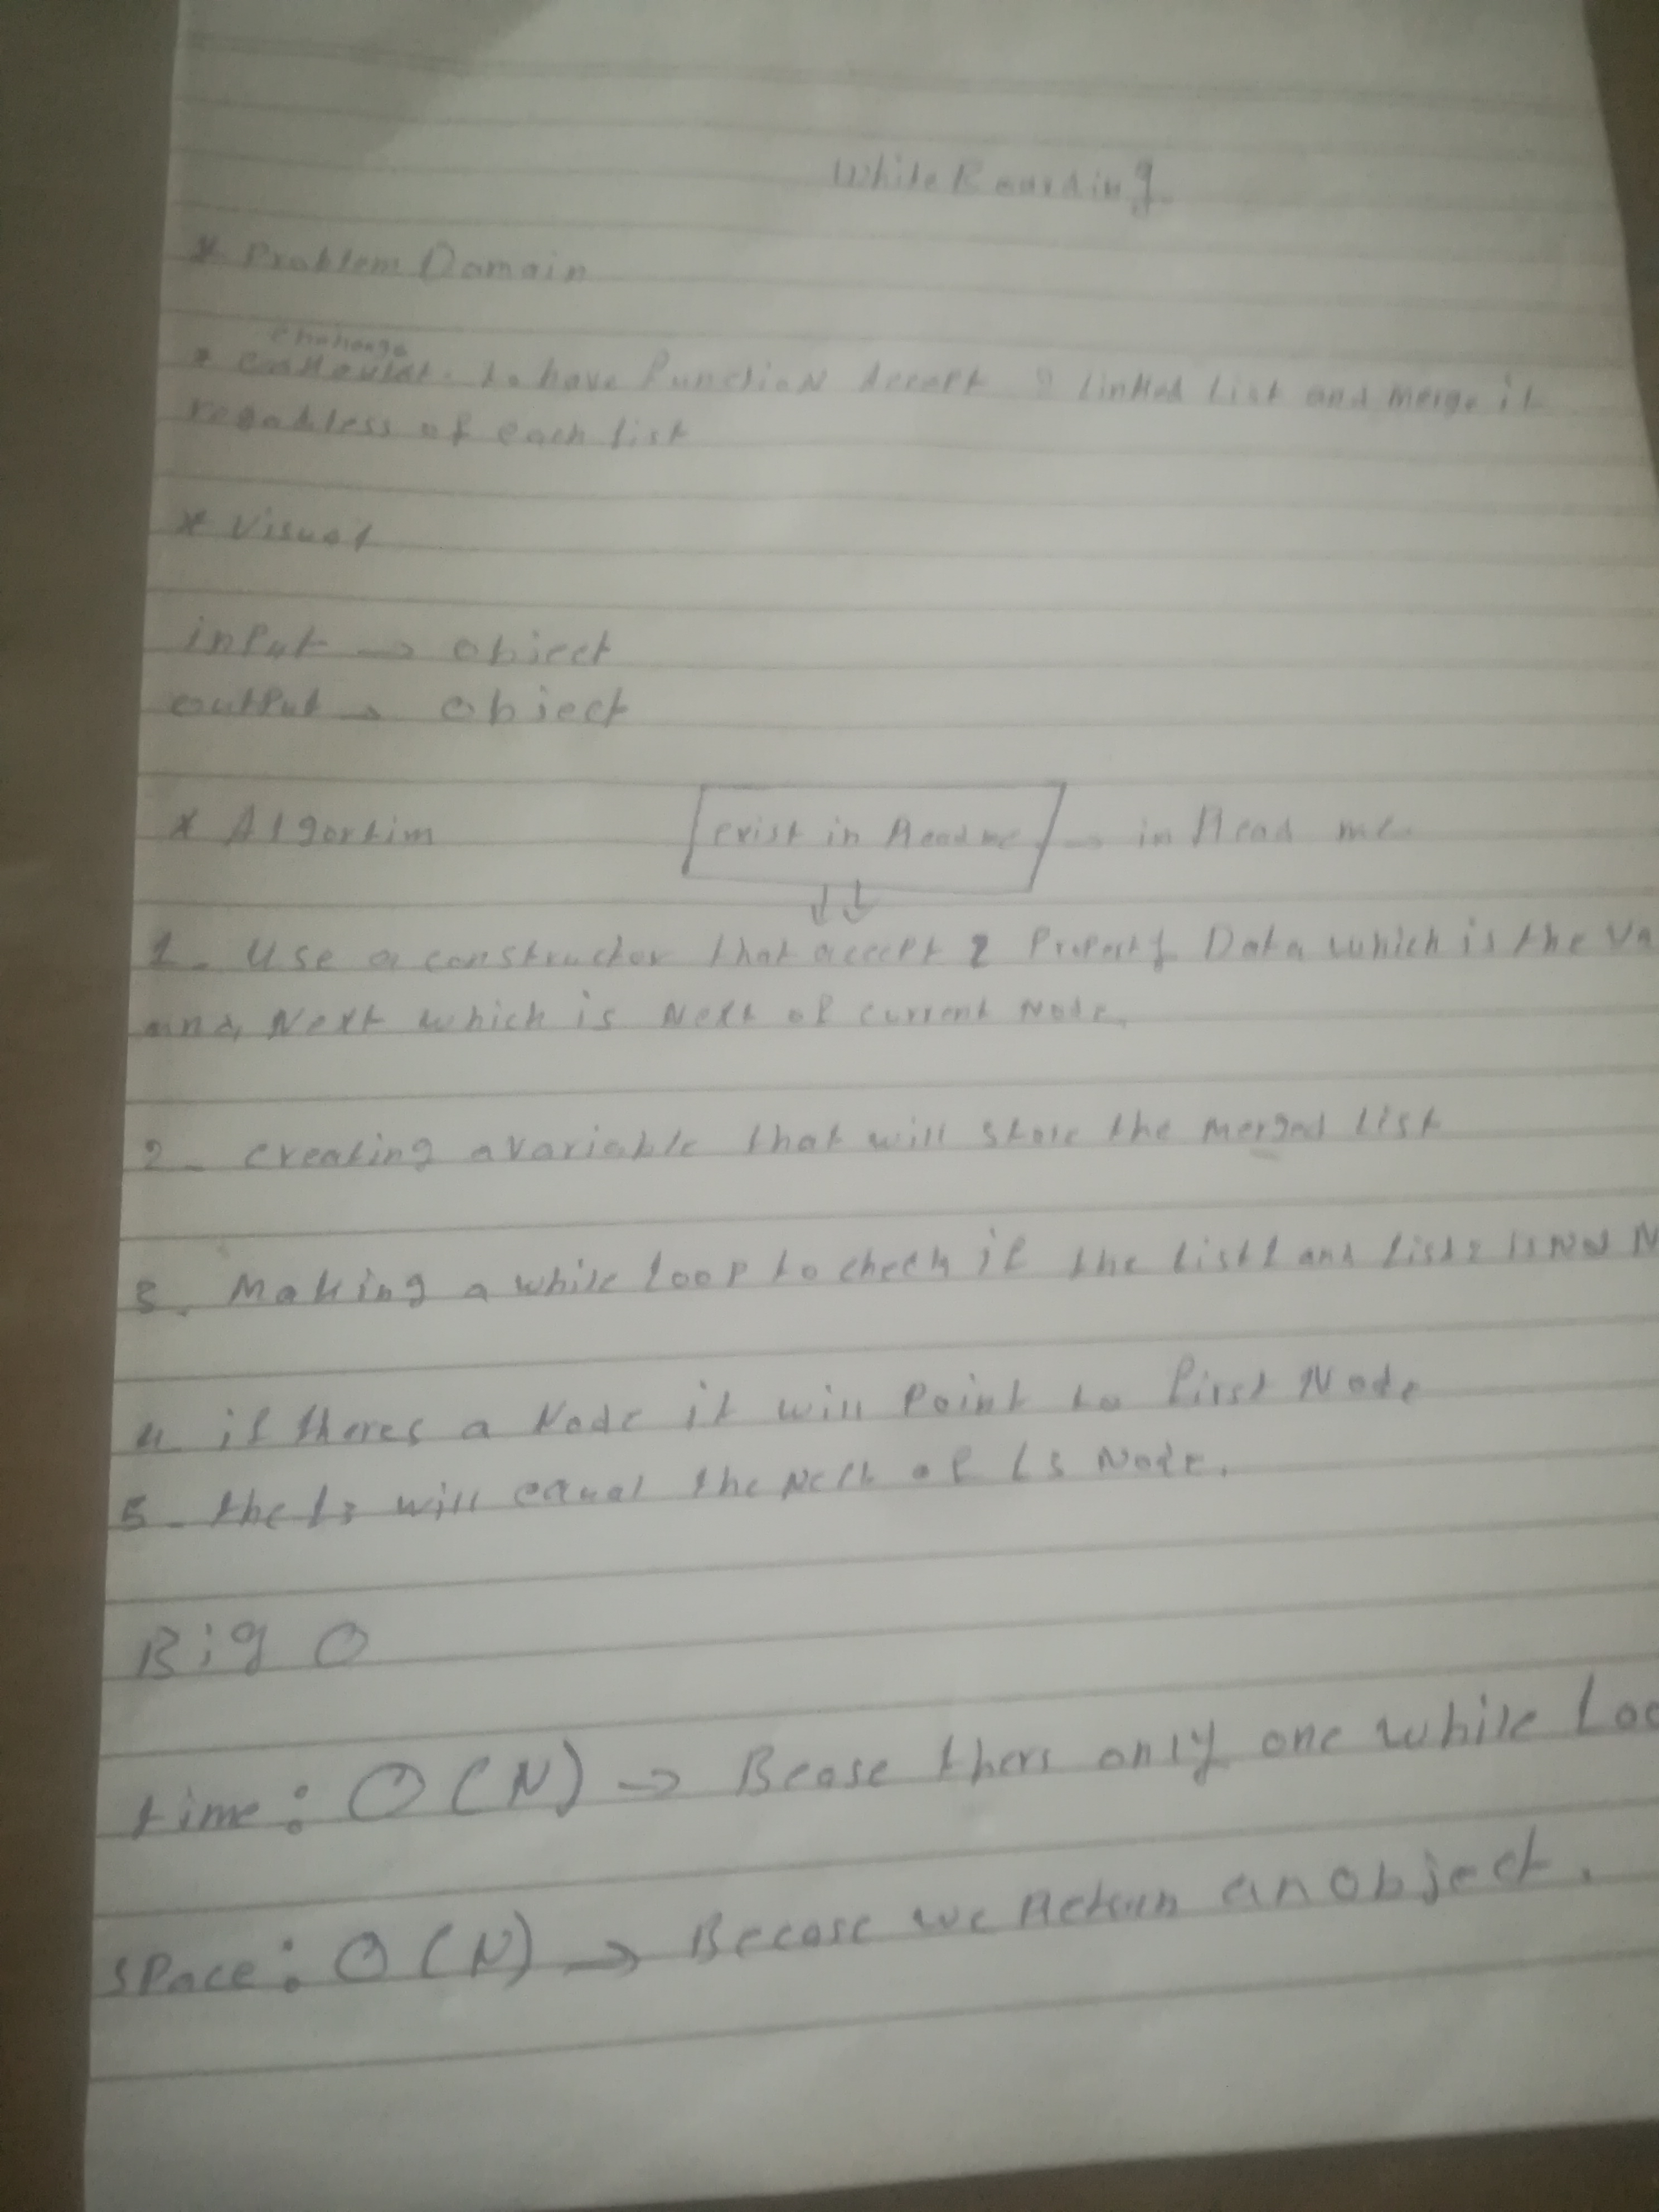 White Boarding
* Problem Domain
* to have function Accept 2 linked list and merge it
regadless of each list
* Visual
input → object
output → object
* Algortim exist in Readme → in Read me.
1. Use a constructor that accept 2 Property Data which is the Va
and Next which is Next of current Node.
2 - creating a variable that will store the merged list
3. Making a while loop to check if the list1 and list2 is Not N
4 - if theres a Node it will Point to first Node
5 - the will equal the Next of Node.
Big O
time: O(N) → Becase thers only one while Loo
space: O(N) → Becase we Return an object.